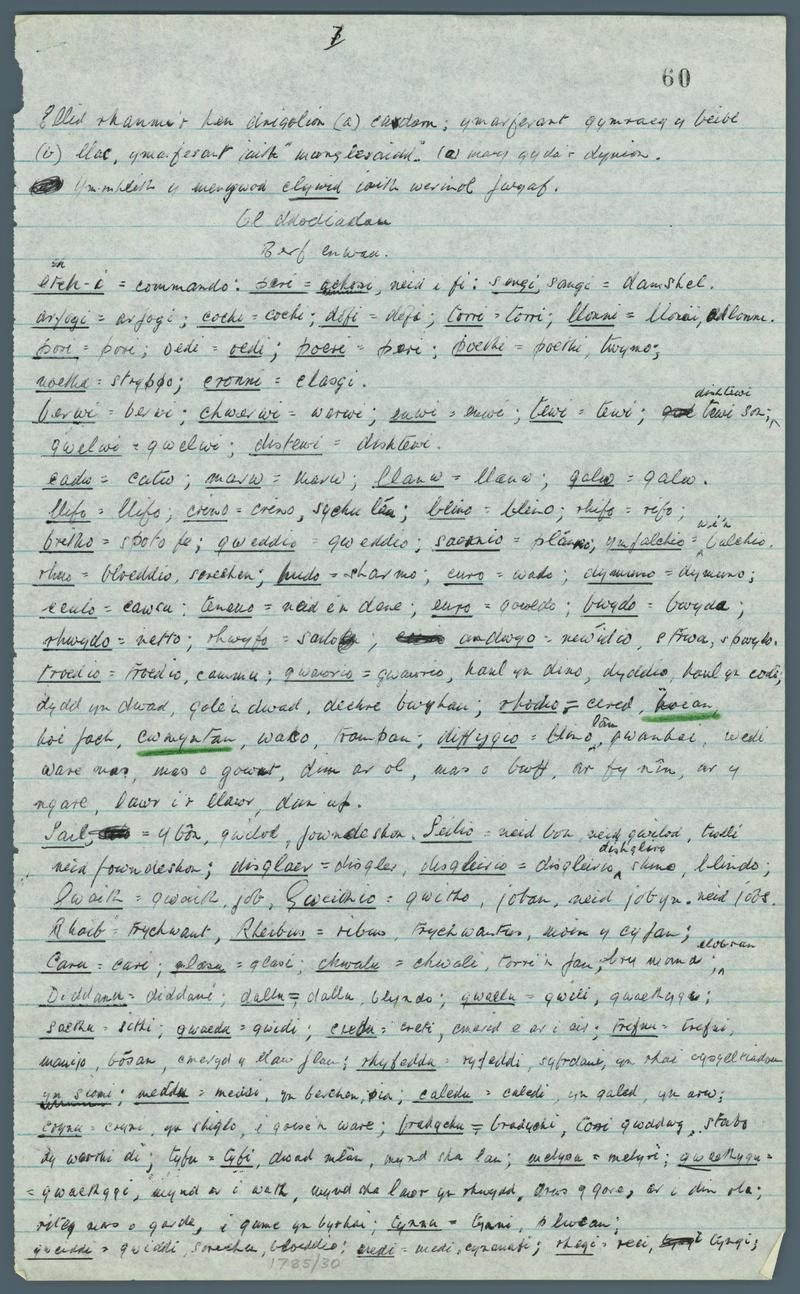 7
60
Ellid rhannu'r hen drigolion (a) ; ymarferant gymraeg y beibl
(b) llac, ymarferant iaith " ". (a) gyda'r dynion.
Ym mhlith y menywod clywid iaith werinol
Ol ddodiadau
Berf enwau.
= commando: peri = , neid i fi: sengi, sangi = damshel.
arfogi = arfogi; cochi = cochi; difi = difi; torri = torri; llonni = llonni,
pori = pori; oedi = oedi; poeri = peri; poethi = poethi, twymo;
noethi = stryppo; cronni = clasgi.
berwi = berwi; chwerwi = werwi; enwi = enwi; tewi = tewi; tewi son; dishtewi
gwelwi = gwelwi; distewi = dishtewi.
cadw = catw; marw = marw; llanw = llanw; galw = galw.
llifo = llifo; crino = crino, sychu lan; blino = blino; rhifo = rifo;
britho = spoto fe; gweddïo = gweddïo; ymfalchio = w i'n balchïo.
rhuo = bloeddio, screchen; hudo = charmo; curo = wado; dymuno = dymuno;
ceulo = cawsu; teneuo = neid e'n dene; euro = gowldo; bwydo = bwyda;
rhwydo = netto; rhwyfo = ; andwyo = newidio, striwa, spwylo.
troedio = troedio, cammu; gwawrio = gwawrio, haul yn dino, dyddio, haul yn codi;
dydd yn dwad, gole'n dwad, dechre bwyhau; rhodio = cered, hocan,
hoi fach, cwmyntan, waco, trampan; diffygio = blino lan, gwanhai, wedi
ware mas, mas o gownt, dim ar ol, mas o bwff, ar fy nin, ar y
ngare, lawr i'r llawr, dun up.
Sail = y bôn, gwilod, fowndeshon. Seilio = neid bon, neid gwilod,
neid fowndeshon; disglaer = disgler, disgleirio = disgleirio, dishgliro shino, blindo;
Gwaith = gwaith, job, Gweithio = gwitho, joban, neid jobyn. neid jobs.
Rhaib = trychwant, Rheibus = ribus, trychwantus, moin y cyfan;
Caru = cari; glasu = glasi; chwalu = chwali, torri'n fan,
Diddanu = diddani; dallu = dallu, blyndo; gwaelu = gwili, gwaethygu;
saethu = sithi; gwaedu = gwidi; credu = creti, cmerid e ar i air; trefnu = trefni,
manijo, bosan, cmeryd y llaw flan; rhyfeddu = ryfeddi, syfrdani, yn rhai
yn siomi; meddu = meddi, yn berchen, pia; caledu = caledi, yn galed, yn arw;
crynu = cryni, yn shiglo, i goese'n ware; bradychu = bradychi, torri gwddwg, stabo
dy werthi di; tyfu = tyfi, dwad mlan, mynd sha lan; melysu = melysi; gwaethygu =
= gwaethygi, mynd ar i wath, mynd sha lawr yn rhwydd, drws y gore, ar i din ola;
mas o garde, i game yn byrhai; tynnu = tynni, plwcan;
gweiddi = gwiddi, screchen, bloeddio; medi = medi, cynanafi; rhegi = reci, tyngi;
1785/30